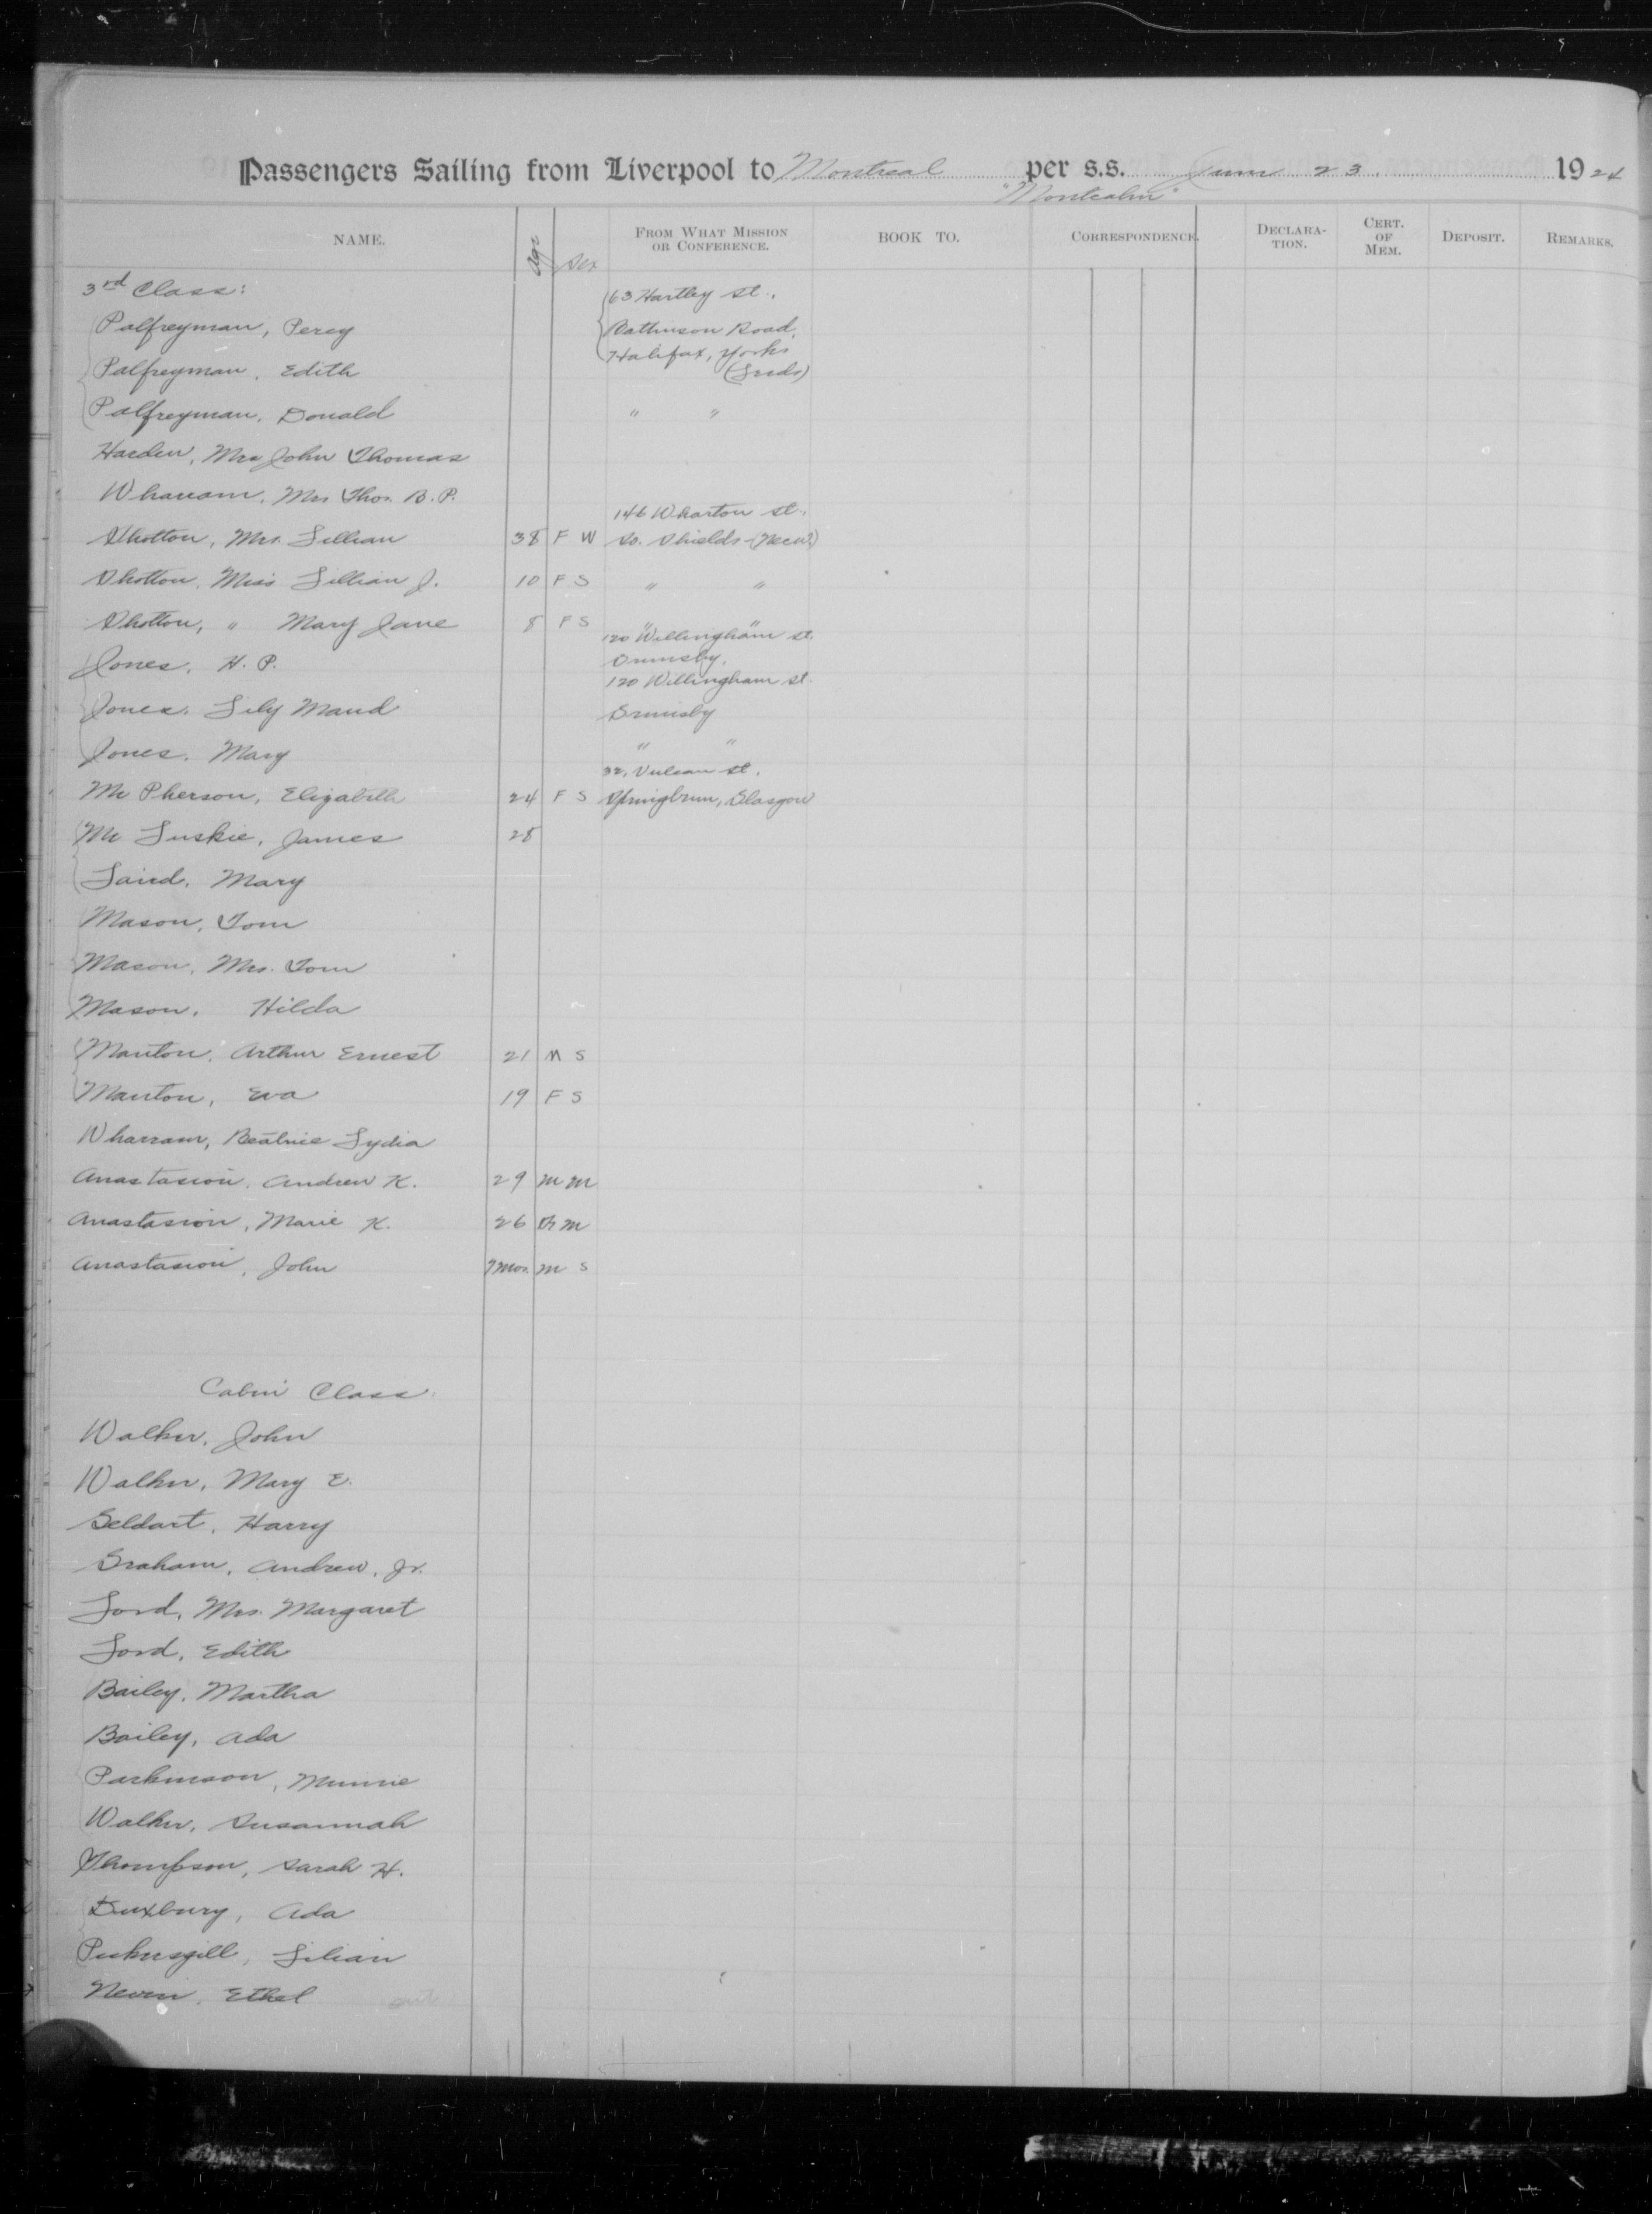 Passengers Sailing from Liverpool to Montreal per s.s. "Montcalm" June 23. 1924
NAME. Age Sex FROM WHAT MISSION OR CONFERENCE. BOOK TO. CORRESPONDENCE. DECLARATION. CERT. OF MEM. DEPOSIT. REMARKS.
3rd Class: 63 Hartley St.,
Palfreyman, Percy Road,
Halifax, Yorks
Palfreyman, Edith (Leeds)
Palfreyman, Donald " "
Harden, Mrs John Thomas
Wharram, Mrs Thos. B. P.
146 Wharton St.,
Shotton, Mrs. Lillian 38 F W So. Shields - (Newc)
Shotton, Miss Lillian J. 10 F S " "
Shotton, " Mary Jane 8 F S " "
120 Willingham St.
Jones, H. P. Ormsby,
120 Willingham St.
Jones, Lily Maud Ormsby
Jones, Mary " "
32, Vulcan St.,
Mc Pherson, Elizabeth 24 F S Springburn, Glasgow
Mc Luskie, James 28
Laird, Mary
Mason, Tom
Mason, Mrs. Tom
Mason, Hilda
Manton, Arthur Ernest 21 M S
Manton, Eva 19 F S
Wharram, Beatrice Lydia
Anastasion, Andrew K. 29 M M
Anastasion, Marie K. 26 F M
Anastasion, John 7 mos. M S
Cabin Class:
Walker, John
Walker, Mary E.
Geldart, Harry
Graham, Andrew, Jr.
Lord, Mrs. Margaret
Lord, Edith
Bailey, Martha
Bailey, Ada
Parkinson, Minnie
Walker, Susannah
Thompson, Sarah H.
Duxbury, Ada
Pickersgill, Lilian
Nevin, Ethel